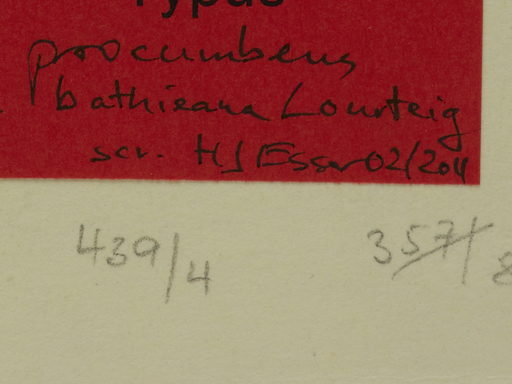 Typus
procumbens
bathieana Lourteig
scr. HJ Esser 02/2011
439/4 357/8